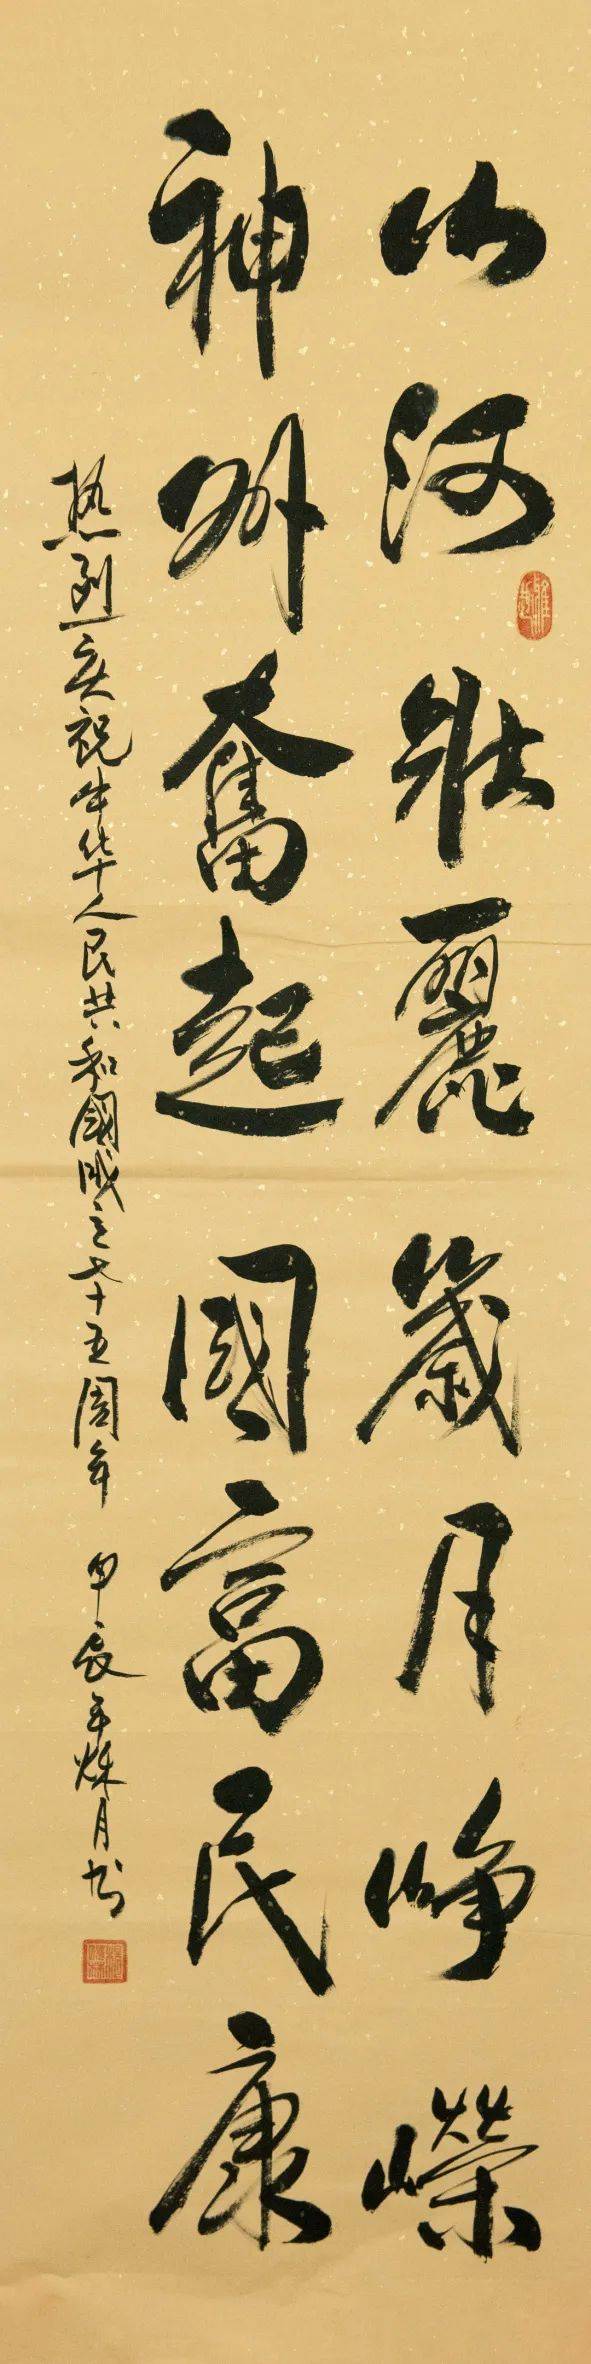 山河壯麗歲月崢嶸
神州奮起國富民康
热烈庆祝中华人民共和國成立七十五周年 甲辰年秌月书